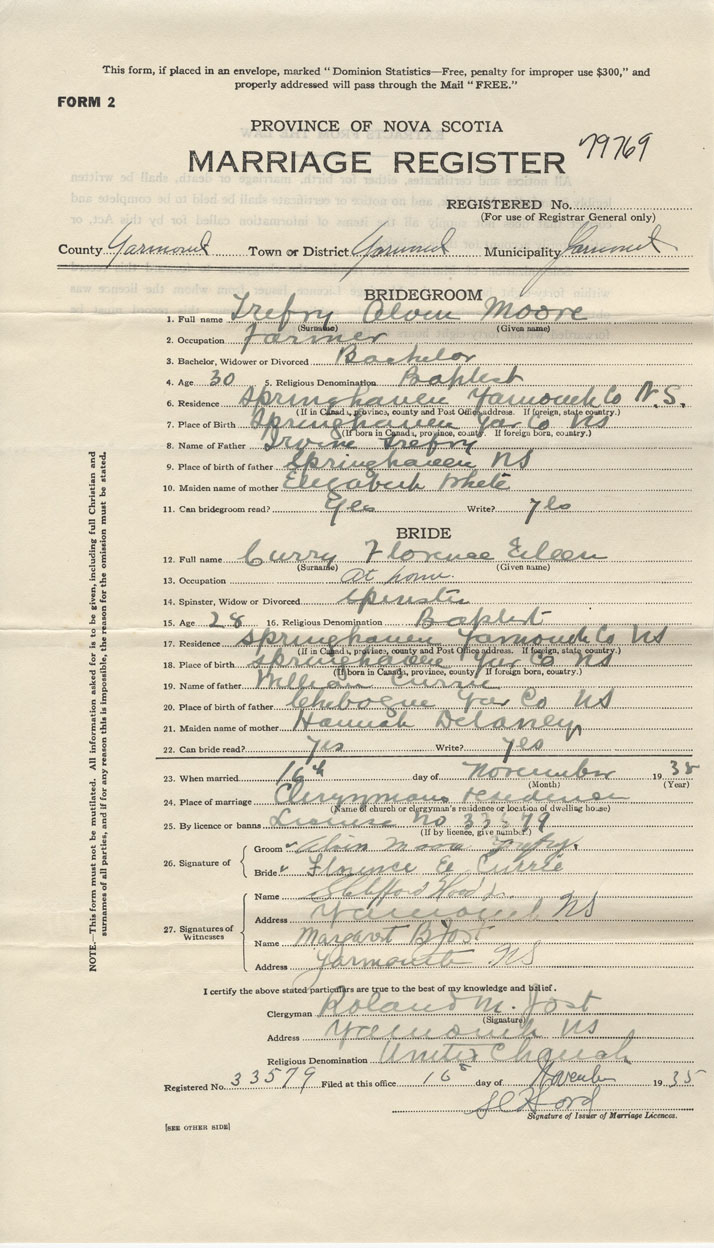 This form, if placed in an envelope, marked "Dominion Statistics—Free, penalty for improper use $300," and
properly addressed will pass through the Mail "FREE."
FORM 2
PROVINCE OF NOVA SCOTIA
MARRIAGE REGISTER 79769
REGISTERED No.
(For use of Registrar General only)
County Yarmouth Town or District Yarmouth Municipality Yarmouth
BRIDEGROOM
1. Full name Trefry Alven Moore
(Surname) (Given name)
2. Occupation Farmer
3. Bachelor, Widower or Divorced Bachelor
4. Age 30 5. Religious Denomination Baptist
6. Residence Springhaven Yarmouth Co N.S.
(If in Canada, province, county and Post Office address. If foreign, state country.)
7. Place of Birth Springhaven Yar Co NS
(If born in Canada, province, county. If foreign born, country.)
8. Name of Father Irvine Trefry
9. Place of birth of father Springhaven NS
10. Maiden name of mother Elizabeth White
11. Can bridegroom read? Yes Write? Yes
BRIDE
12. Full name Curry Florence Eileen
(Surname) (Given name)
13. Occupation At home
14. Spinster, Widow or Divorced Spinster
15. Age 28 16. Religious Denomination Baptist
17. Residence Springhaven Yarmouth Co NS
(If in Canada, province, county and Post Office address. If foreign, state country.)
18. Place of birth Springhaven Yar Co NS
(If born in Canada, province, county. If foreign born, country.)
19. Name of father William Currie
20. Place of birth of father Chebogue Yar Co NS
21. Maiden name of mother Hannah Delaney
22. Can bride read? Yes Write? Yes
23. When married 16th day of November 1935
(Month) (Year)
24. Place of marriage Clergymans residence
(Name of church or clergyman's residence or location of dwelling house)
25. By licence or banns License No 33579
(If by licence, give number.)
26. Signature of
Groom Alvin Moore Trefry
Bride Florence E. Currie
27. Signatures of Witnesses
Name Clifford Wood
Address Yarmouth NS
Name Margaret B Jost
Address Yarmouth NS
I certify the above stated particulars are true to the best of my knowledge and belief.
Clergyman Roland M. Jost
(Signature)
Address Yarmouth NS
Religious Denomination United Church
Registered No. 33579 Filed at this office 16 day of November 1935
Signature of Issuer of Marriage Licences.
[SEE OTHER SIDE]
NOTE.—This form must not be mutilated. All information asked for is to be given, including full Christian and
surnames of all parties, and if for any reason this is impossible, the reason for the omission must be stated.